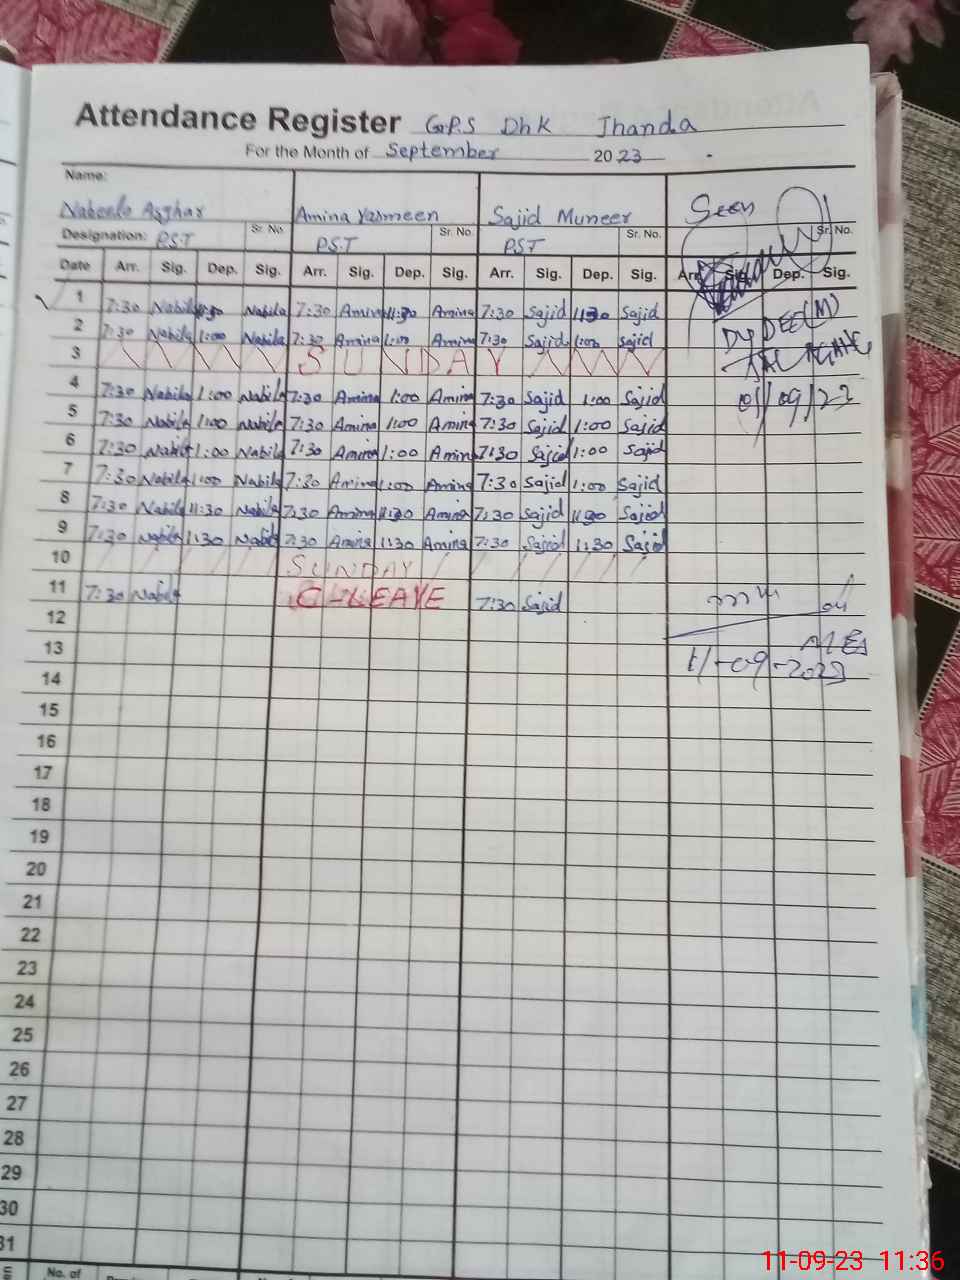 Attendance Register G.P.S Dhk Jhanda
For the Month of September 2023
Name:
Nabeela Asghar Amina Yasmeen Sajid Muneer Seen
Designation: P.S.T Sr. No. P.S.T Sr. No. P.S.T Sr. No. Sr. No.
Date Arr. Sig. Dep. Sig. Arr. Sig. Dep. Sig. Arr. Sig. Dep. Sig. Arr. Sig. Dep. Sig.
1 7:30 Nabila 11:30 Nabila 7:30 Amina 11:30 Amina 7:30 Sajid 11:30 Sajid
2 7:30 Nabila 1:00 Nabila 7:30 Amina 1:00 Amina 7:30 Sajid 1:00 Sajid Dy DEO (M)
3 SUNDAY
4 7:30 Nabila 1:00 Nabila 7:30 Amina 1:00 Amina 7:30 Sajid 1:00 Sajid 01/09/23
5 7:30 Nabila 1:00 Nabila 7:30 Amina 1:00 Amina 7:30 Sajid 1:00 Sajid
6 7:30 Nabila 1:00 Nabila 7:30 Amina 1:00 Amina 7:30 Sajid 1:00 Sajid
7 7:30 Nabila 1:00 Nabila 7:30 Amina 1:00 Amina 7:30 Sajid 1:00 Sajid
8 7:30 Nabila 11:30 Nabila 7:30 Amina 11:30 Amina 7:30 Sajid 11:30 Sajid
9 7:30 Nabila 1:30 Nabila 7:30 Amina 1:30 Amina 7:30 Sajid 1:30 Sajid
10 SUNDAY
11 7:30 Nabila C-LEAVE 7:30 Sajid
12
13 MEA
14 11-09-2023
15
16
17
18
19
20
21
22
23
24
25
26
27
28
29
30
31
No. of
11-09-23 11:36